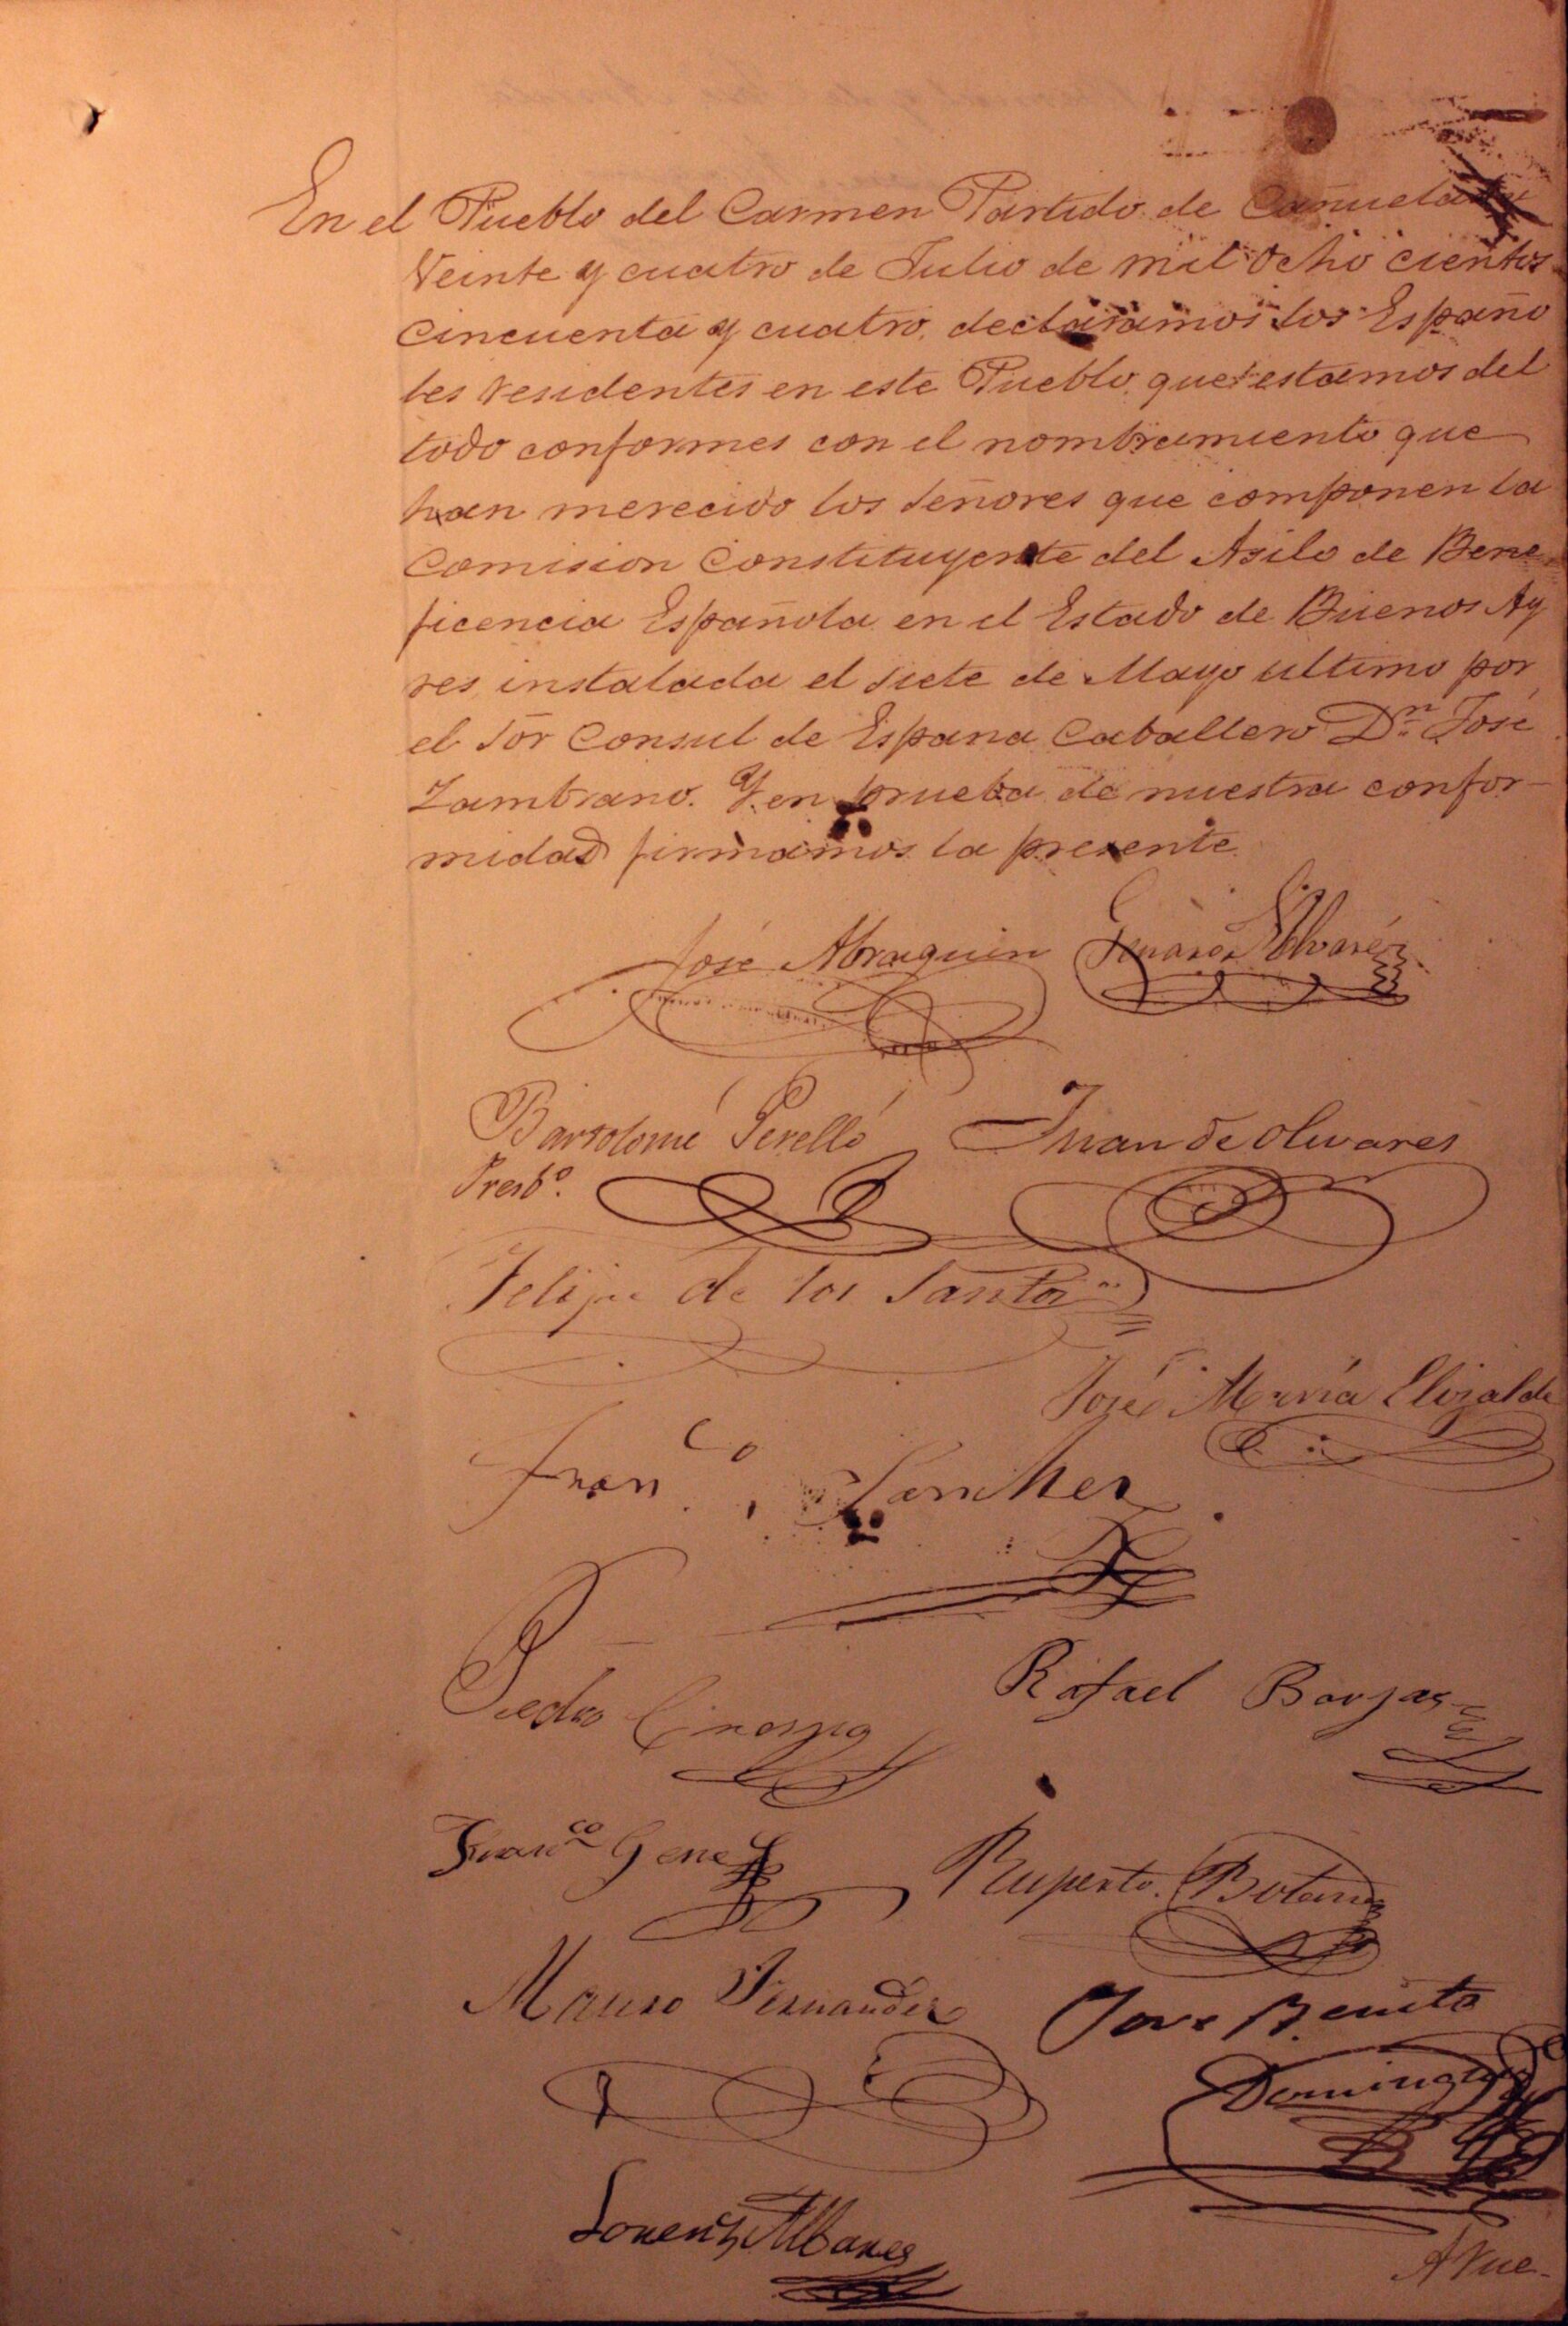 En el Pueblo del Carmen Partido de Cañuelas
Veinte y cuatro de Julio de mil ocho cientos
cincuenta y cuatro, declaramos los Españo
les residentes en este Pueblo, que estamos del
todo conformes con el nombramiento que
han merecido los Señores que componen la
Comision Constituyente del Asilo de Bene
ficencia Española en el Estado de Buenos Ay
res, instalada el siete de Mayo ultimo por
el Sõr Consul de Espana Caballero Dn. José
Zambrano. Y en prueba de nuestra confor-
midad firmamos la presente
José Abraguin Genaro Alvarez
Bartolomé Perelló Juan de Olivares
Presbo.
Felipe de los Santos
José María Elizalde
Franco. Sanchez
Pedro
Rafael Borjas
Franco
Ruperto
Mauro Fernandez Jose Benito
Doming
Lorenzo Albares
A Vue-